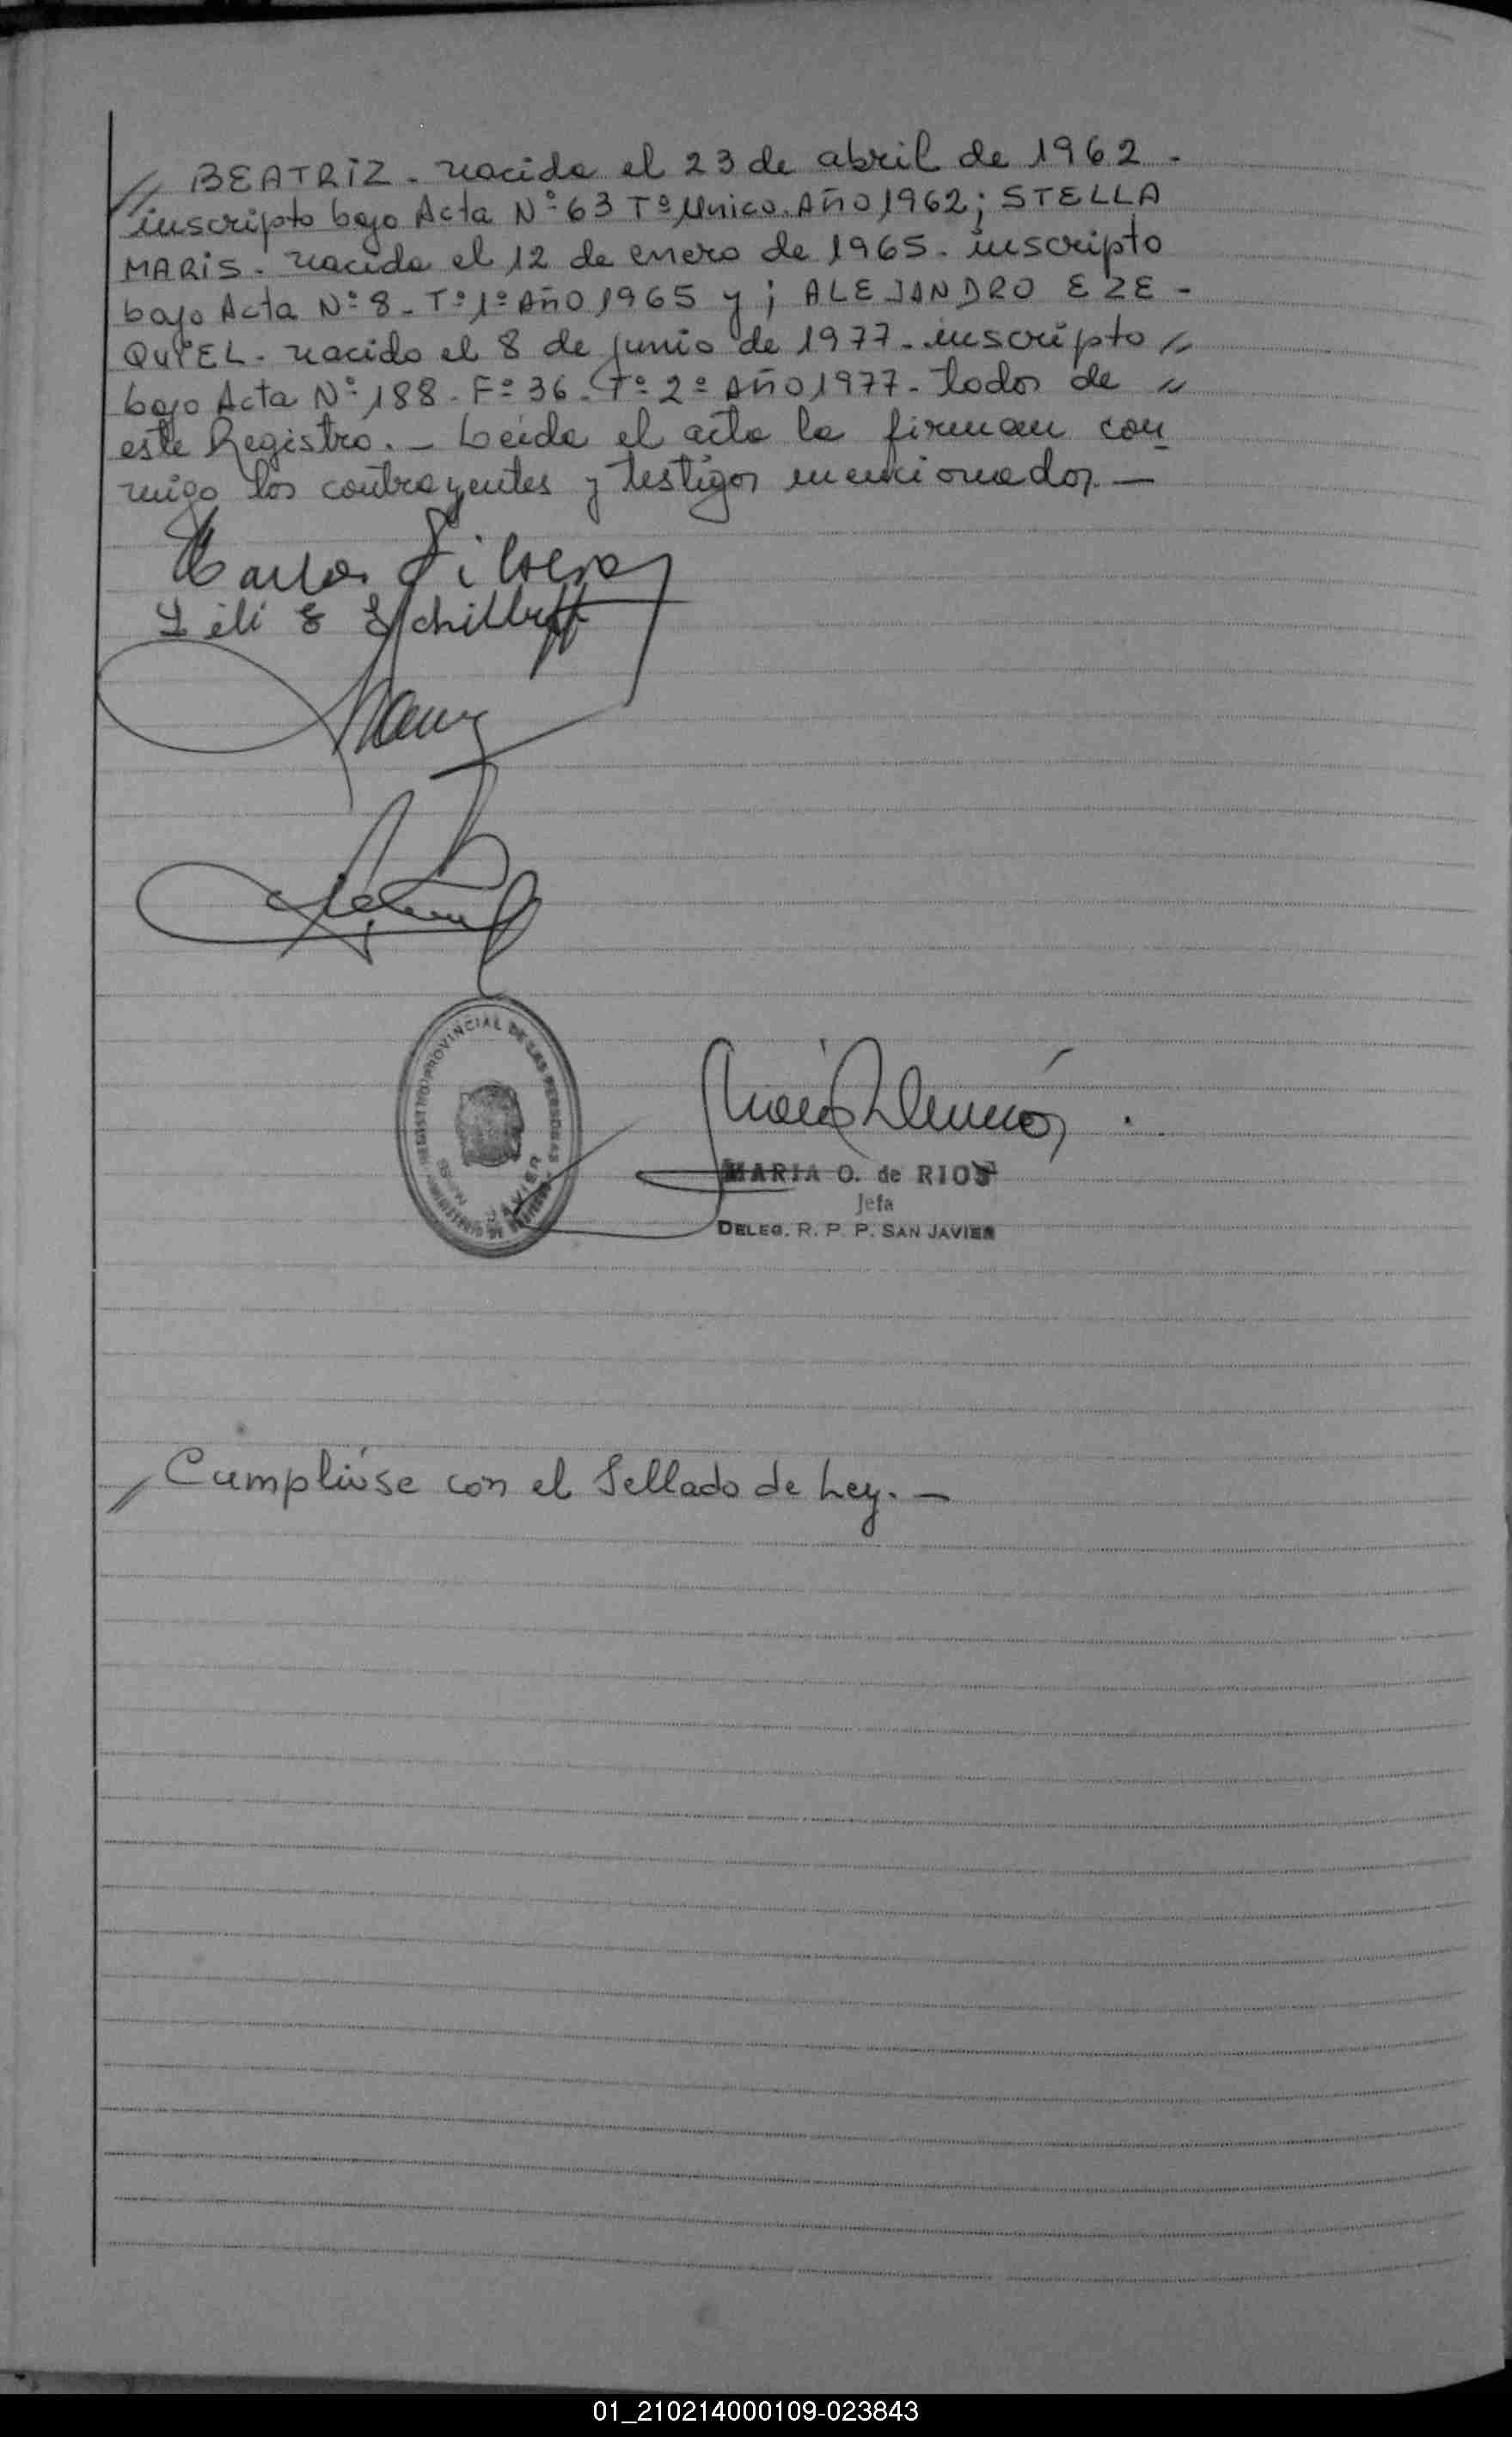 // BEATRIZ - nacida el 23 de abril de 1962 -
inscripto bajo Acta Nº 63 Tº Unico. Año 1962; STELLA
MARIS - nacida el 12 de enero de 1965 - inscripto
bajo Acta Nº 8 - Tº 1º Año 1965 y; ALEJANDRO EZE -
QUIEL - nacido el 8 de junio de 1977 - inscripto //
bajo Acta Nº 188 - Fº 36 - Tº 2º Año 1977 - todos de //
este Registro. - Leída el acta la firman con
migo los contrayentes y testigos mencionados. -
Carlos
Lili E
REGISTRO PROVINCIAL DE LAS PERSONAS
JAVIER
MARIA O. de RIOS
Jefa
DELEG. R. P. P. SAN JAVIER
// Cumplióse con el Sellado de Ley. -
01_210214000109-023843